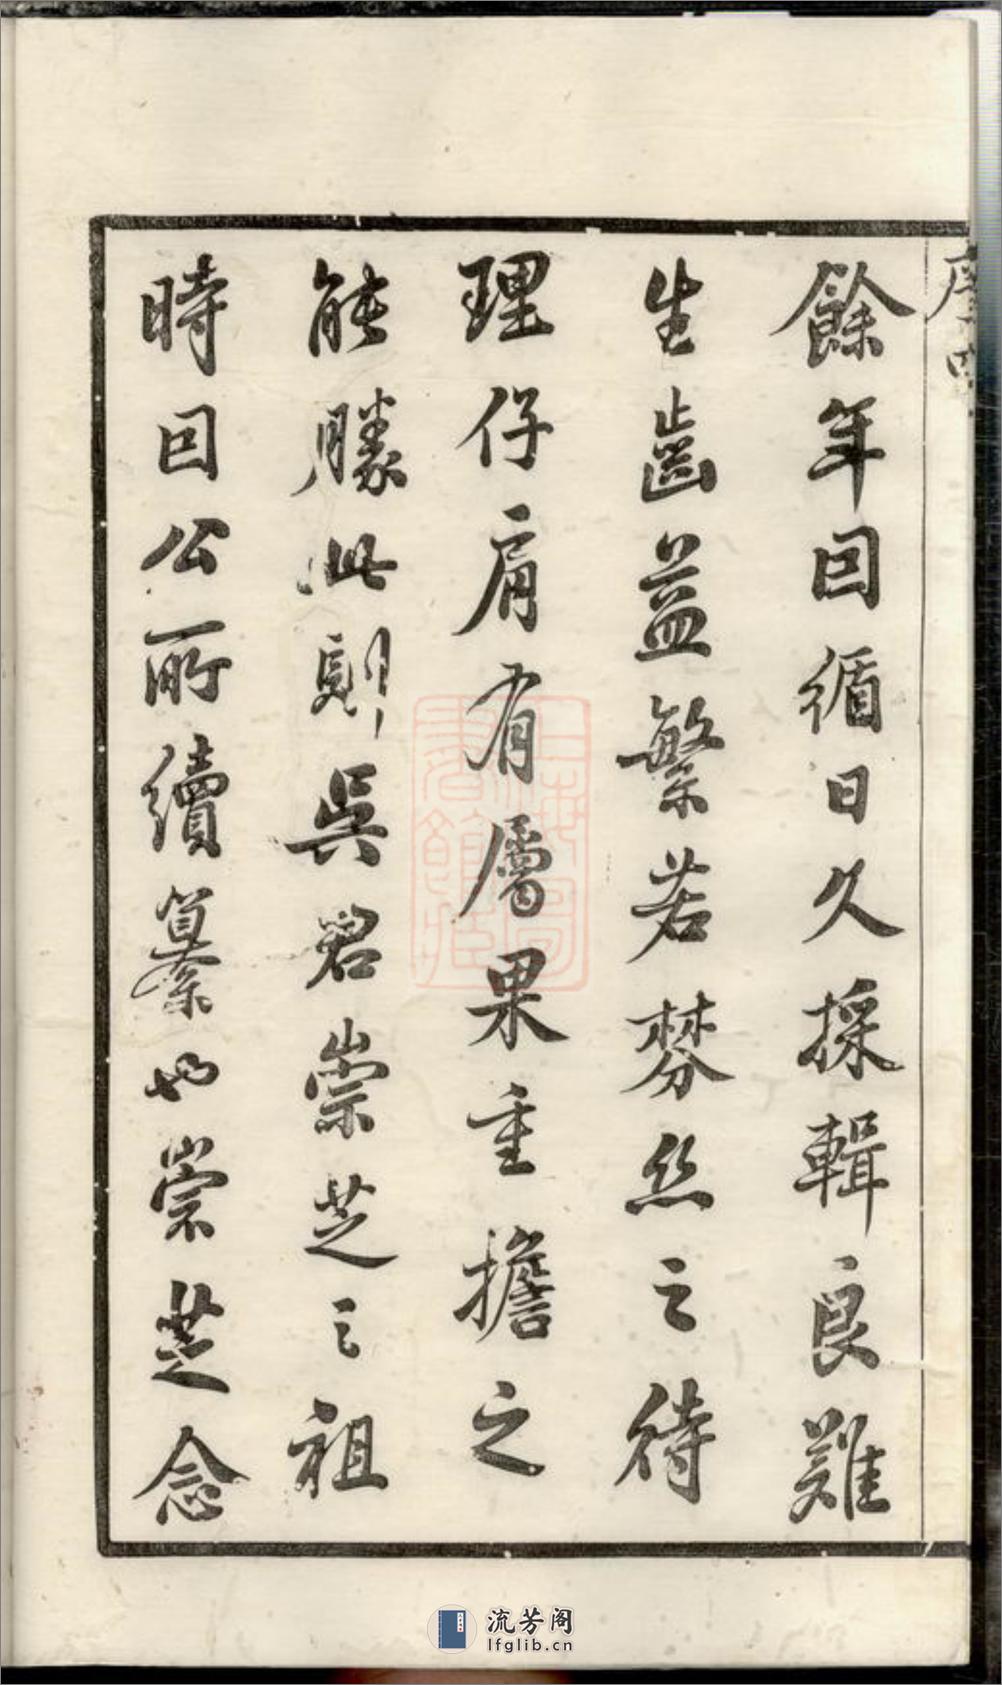 餘年因循日久採輯良難
生齒益繁若棼絲之待
理仔肩有屬果重擔之
能勝此則吳君崇芝之祖
時因公所續纂也崇芝念
上海圖
書館藏
流芳阁
lfglib.cn